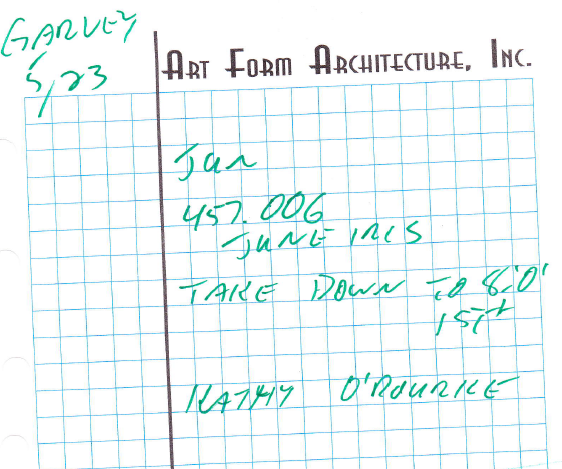 GARVEY
5/23
ART FORM ARCHITECTURE, INC.
Jan
457.006
JUNE IRIS
TAKE DOWN TO 8'0'
1ST
KATHY O'ROURKE